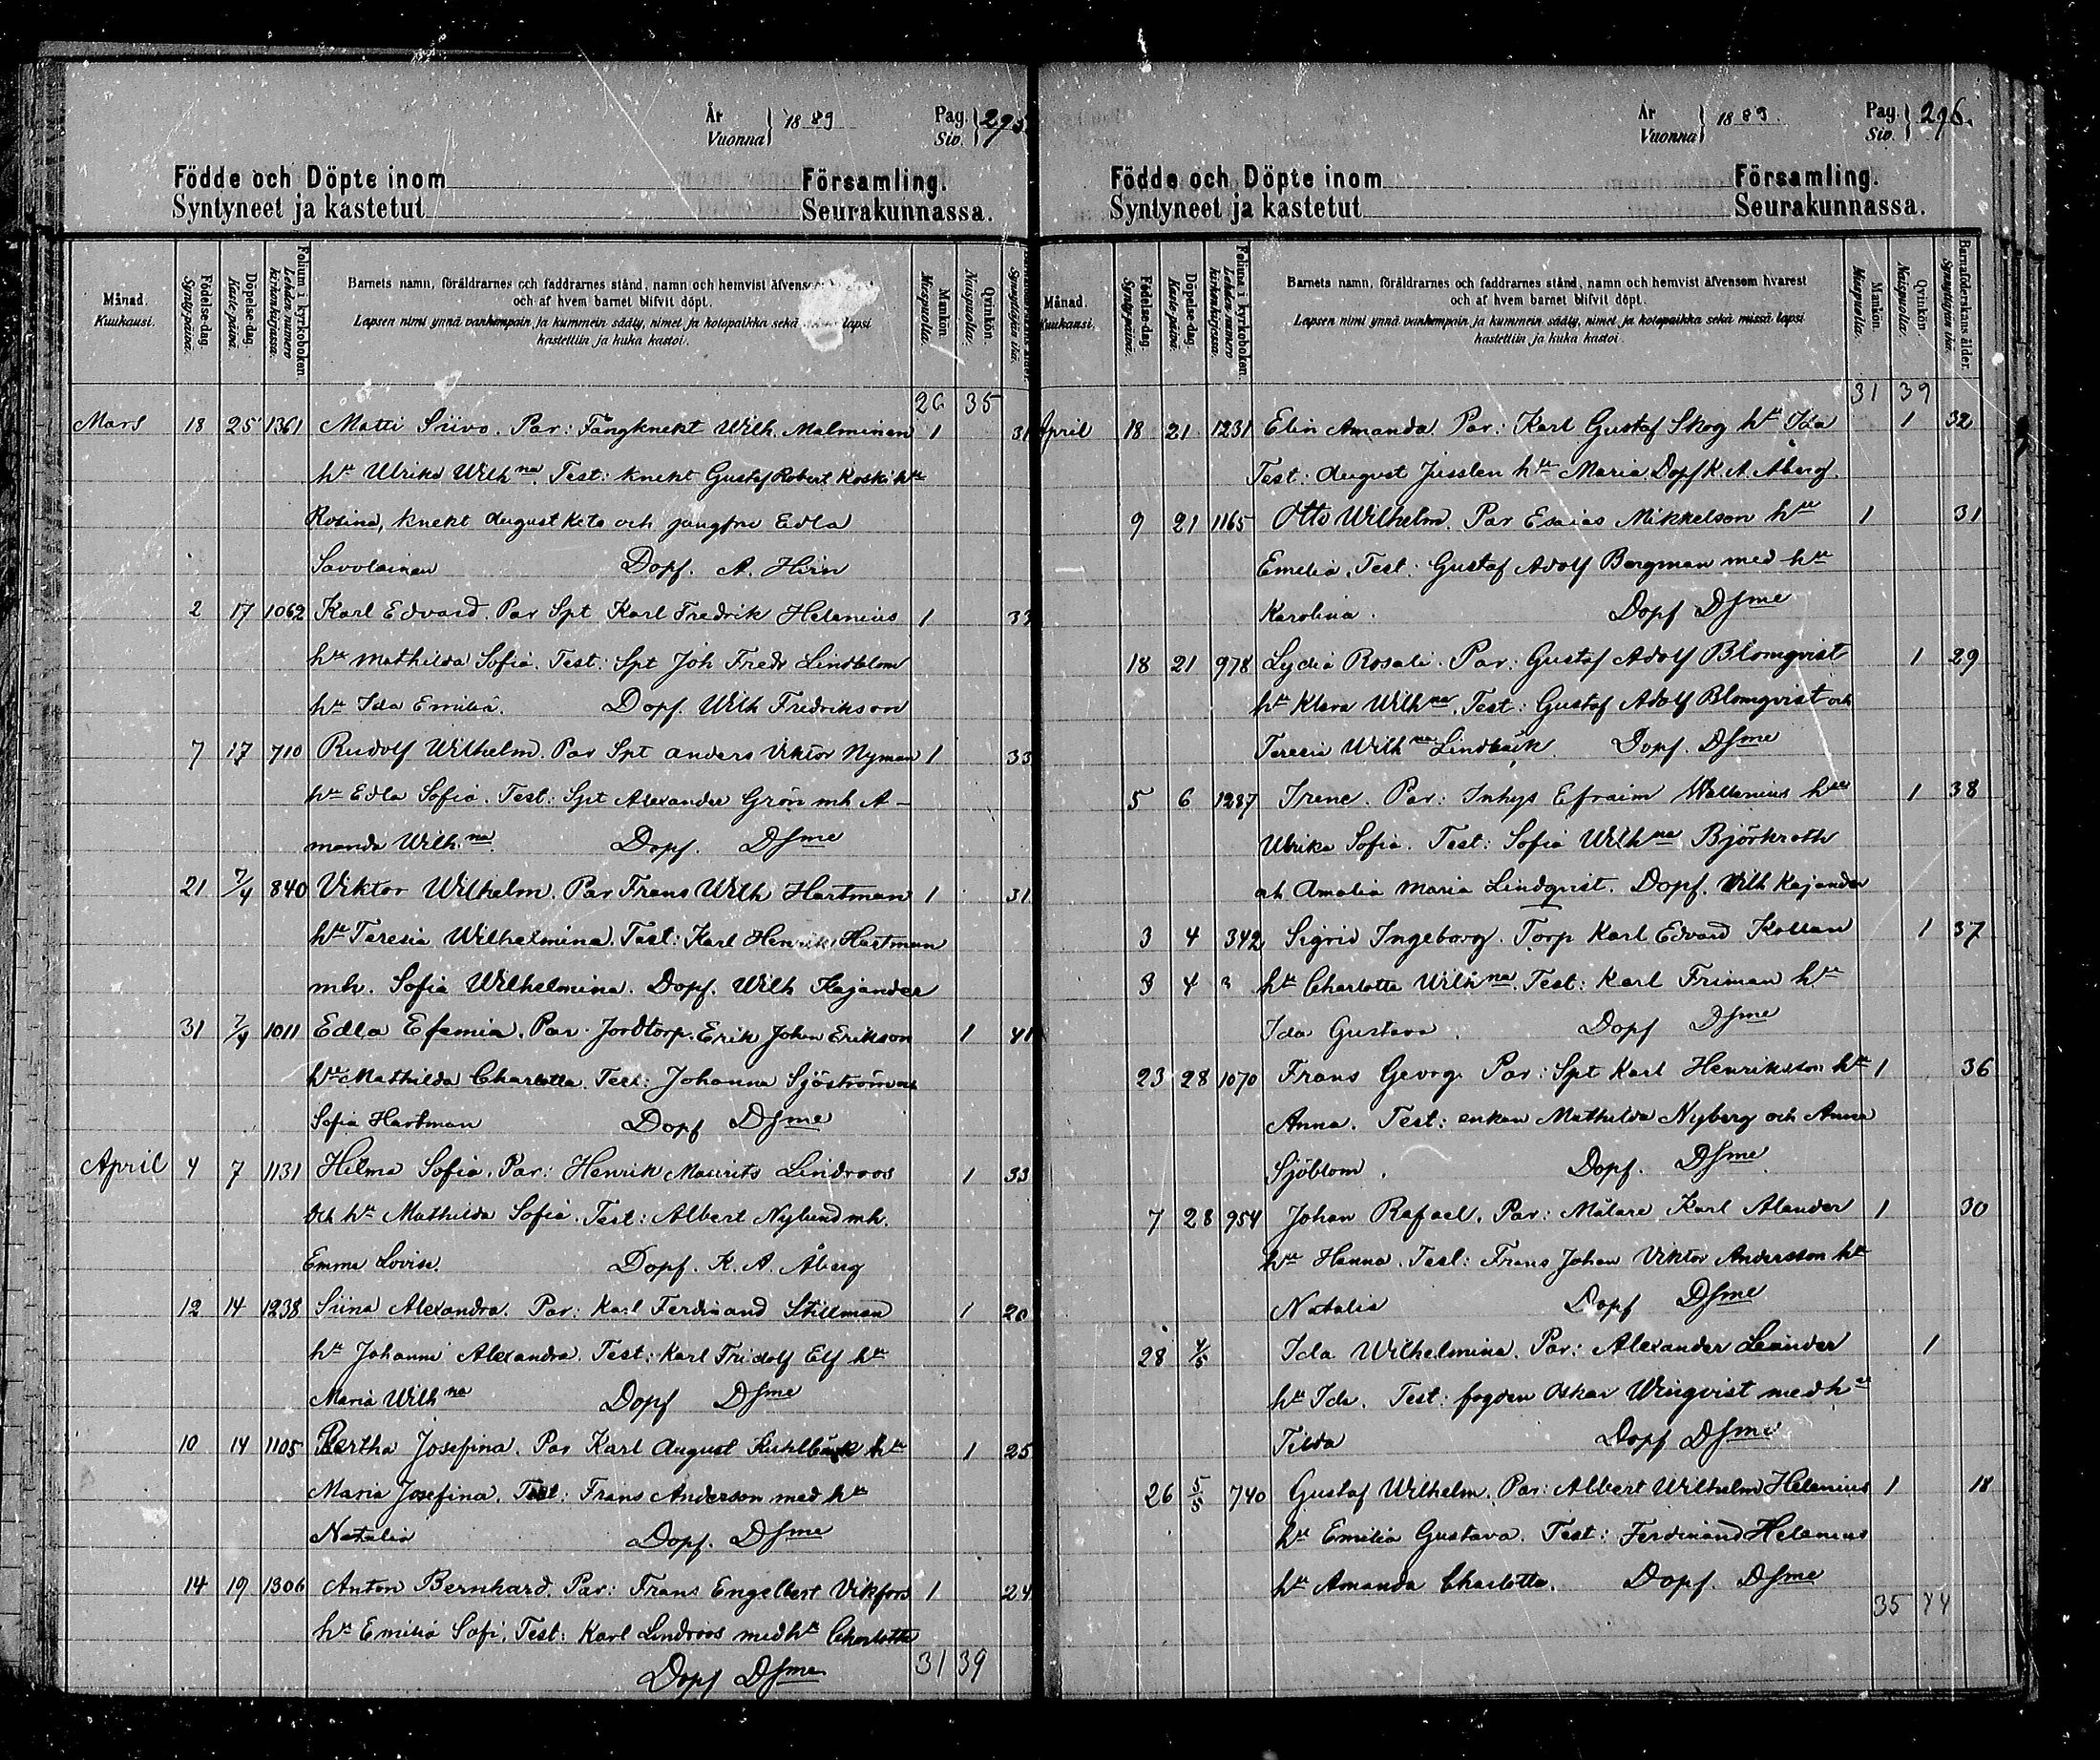 År Vuonna } 1889 Pag. Siv. } 295
Födde och Döpte inom Församling.
Syntyneet ja kastetut Seurakunnassa.
Månad. Kuukausi.
Födelse-dag. Synty-päivä.
Döpelse-dag. Kaste-päivä.
Folium i kyrkoboken. Lehden numero kirkonkirjassa.
Barnets namn, föräldrarnes och faddrarnes stånd, namn och hemvist äfvensom
och af hvem barnet blifvit döpt.
Lapsen nimi ynnä vanhempain ja kummein sääty, nimet ja kotopaikka sekä lapsi
kastettiin ja kuka kastoi.
Mankön. Miespuolia.
Qvinkön. Naispuolia.
26 35
Mars 18 25 1361 Matti Siivo. Par: Fångknekt Wilh. Malminen 1 31
hu Ulrika Wilhna. Test: knekt Gustaf Robert Koski hu
Rosina, knekt August Keto och jungfru Edla
Savolainen Dopf. A. Hirn
2 17 1062 Karl Edvard. Par Spt Karl Fredrik Helenius 1 33
hu Mathilda Sofia. Test: Spt Joh Fredr Lindblom
hu Ida Emilia. Dopf. Wilh Fredrikson
7 17 710 Rudolf Wilhelm. Par Spt Anders Viktor Nyman 1 33
hu Edla Sofia. Test: Spt Alexander Grön mh A-
manda Wilh.na Dopf. DSme
21 7/4 840 Viktor Wilhelm. Par Frans Wilh Hartman 1 31
hu Teresia Wilhelmina. Test: Karl Henrik Hartman
mh. Sofia Wilhelmina. Dopf. Wilh Kajander
31 7/4 1011 Edla Efemia. Par Jordtorp. Erik Johan Erikson 1 41
hu Mathilda Charlotta. Test: Johanna Sjöström och
Sofia Hartman Dopf DSme
April 4 7 1131 Hilma Sofia. Par: Henrik Maurits Lindroos 1 33
och hu Mathilda Sofia. Test: Albert Nylund mh.
Emma Lovisa. Dopf. K. A. Åberg
12 14 1238 Siina Alexandra. Par: Karl Ferdinand Stillman 1 20
hu Johanna Alexandra. Test: Karl Fridolf Elf hu
Maria Wilhna Dopf DSme
10 14 1105 Bertha Josefina. Par Karl August Kuhlbäck hu 1 25
Maria Josefina. Test: Frans Anderson med hu
Natalia Dopf. DSme
14 19 1306 Anton Bernhard. Par: Frans Engelbert Vikfors 1 24
hu Emilia Sofi. Test: Karl Lindroos med hu Charlotta
Dopf DSme 31 39
År Vuonna } 1889. Pag. Siv. } 296.
Födde och Döpte inom Församling.
Syntyneet ja kastetut Seurakunnassa.
Månad. Kuukausi.
Födelse-dag. Synty-päivä.
Döpelse-dag. Kaste-päivä.
Folium i kyrkoboken. Lehden numero kirkonkirjassa.
Barnets namn, föräldrarnes och faddrarnes stånd, namn och hemvist äfvensom hvarest
och af hvem barnet blifvit döpt.
Lapsen nimi ynnä vanhempain ja kummein sääty, nimet ja kotopaikka sekä missä lapsi
kastettiin ja kuka kastoi.
Mankön. Miespuolia.
Qvinkön Naispuolia.
Barnaföderskans ålder. Synnyttäjän ikä.
31 39
April 18 21 1231 Elin Amanda. Par: Karl Gustaf Skog hu Ida 1 32
Test: August Jusslen hu Maria. Dopf K. A. Åberg.
9 21 1165 Otto Wilhelm. Par Esaias Mikkelson hu 1 31
Emelia. Test: Gustaf Adolf Bergman med hu
Karolina. Dopf DSme
18 21 978 Lydia Rosali. Par: Gustaf Adolf Blomqvist 1 29
hu Klara Wilhna. Test: Gustaf Adolf Blomqvist och
Teresia Wilhna Lindbäck. Dopf. DSme
5 6 1287 Irene. Par: Inhys Efraim Wallenius hu 1 38
Ulrika Sofia. Test: Sofia Wilhna Björkroth
och Amalia Maria Lindqvist. Dopf. Wilh Kajander
3 4 342 Sigrid Ingeborg. Torp Karl Edvard Kollan 1 37
3 4 3 hu Charlotta Wilhna. Test: Karl Friman hu
Ida Gustava. Dopf DSme
23 28 1070 Frans Georg. Par: Spt Karl Henriksson hu 1 36
Anna. Test: enkan Mathilda Nyberg och Anna
Sjöblom. Dopf. DSme.
7 28 954 Johan Rafael. Par: Målare Karl Alander 1 30
hu Hanna. Test: Frans Johan Viktor Andersson hu
Natalia Dopf DSme
28 4/5 Ida Wilhelmina. Par: Alexander Leander 1
hu Ida. Test: fogden Oskar Winqvist med hu
Tilda Dopf DSme
26 5/5 740 Gustaf Wilhelm. Par: Albert Wilhelm Helenius 1 18
hu Emilia Gustava. Test: Ferdinand Helenius
hu Amanda Charlotta. Dopf. DSme
35 44